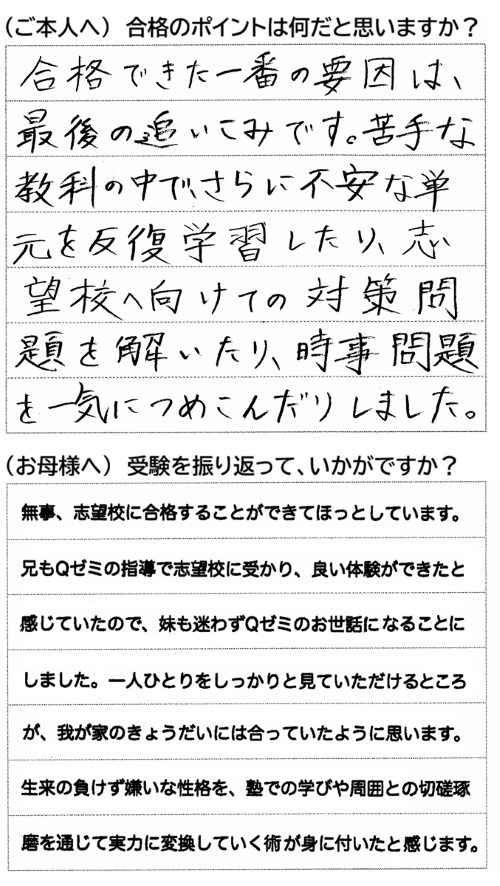 (ご本人へ) 合格のポイントは何だと思いますか?
合格できた一番の要因は、
最後の追いこみです。苦手な
教科の中で、さらに不安な単
元を反復学習したり、志
望校へ向けての対策問
題を解いたり、時事問題
を一気につめこんだりしました。
(お母様へ) 受験を振り返って、いかがですか?
無事、志望校に合格することができてほっとしています。
兄もQゼミの指導で志望校に受かり、良い体験ができたと
感じていたので、妹も迷わずQゼミのお世話になることに
しました。一人ひとりをしっかりと見ていただけるところ
が、我が家のきょうだいには合っていたように思います。
生来の負けず嫌いな性格を、塾での学びや周囲との切磋琢
磨を通じて実力に変換していく術が身に付いたと感じます。